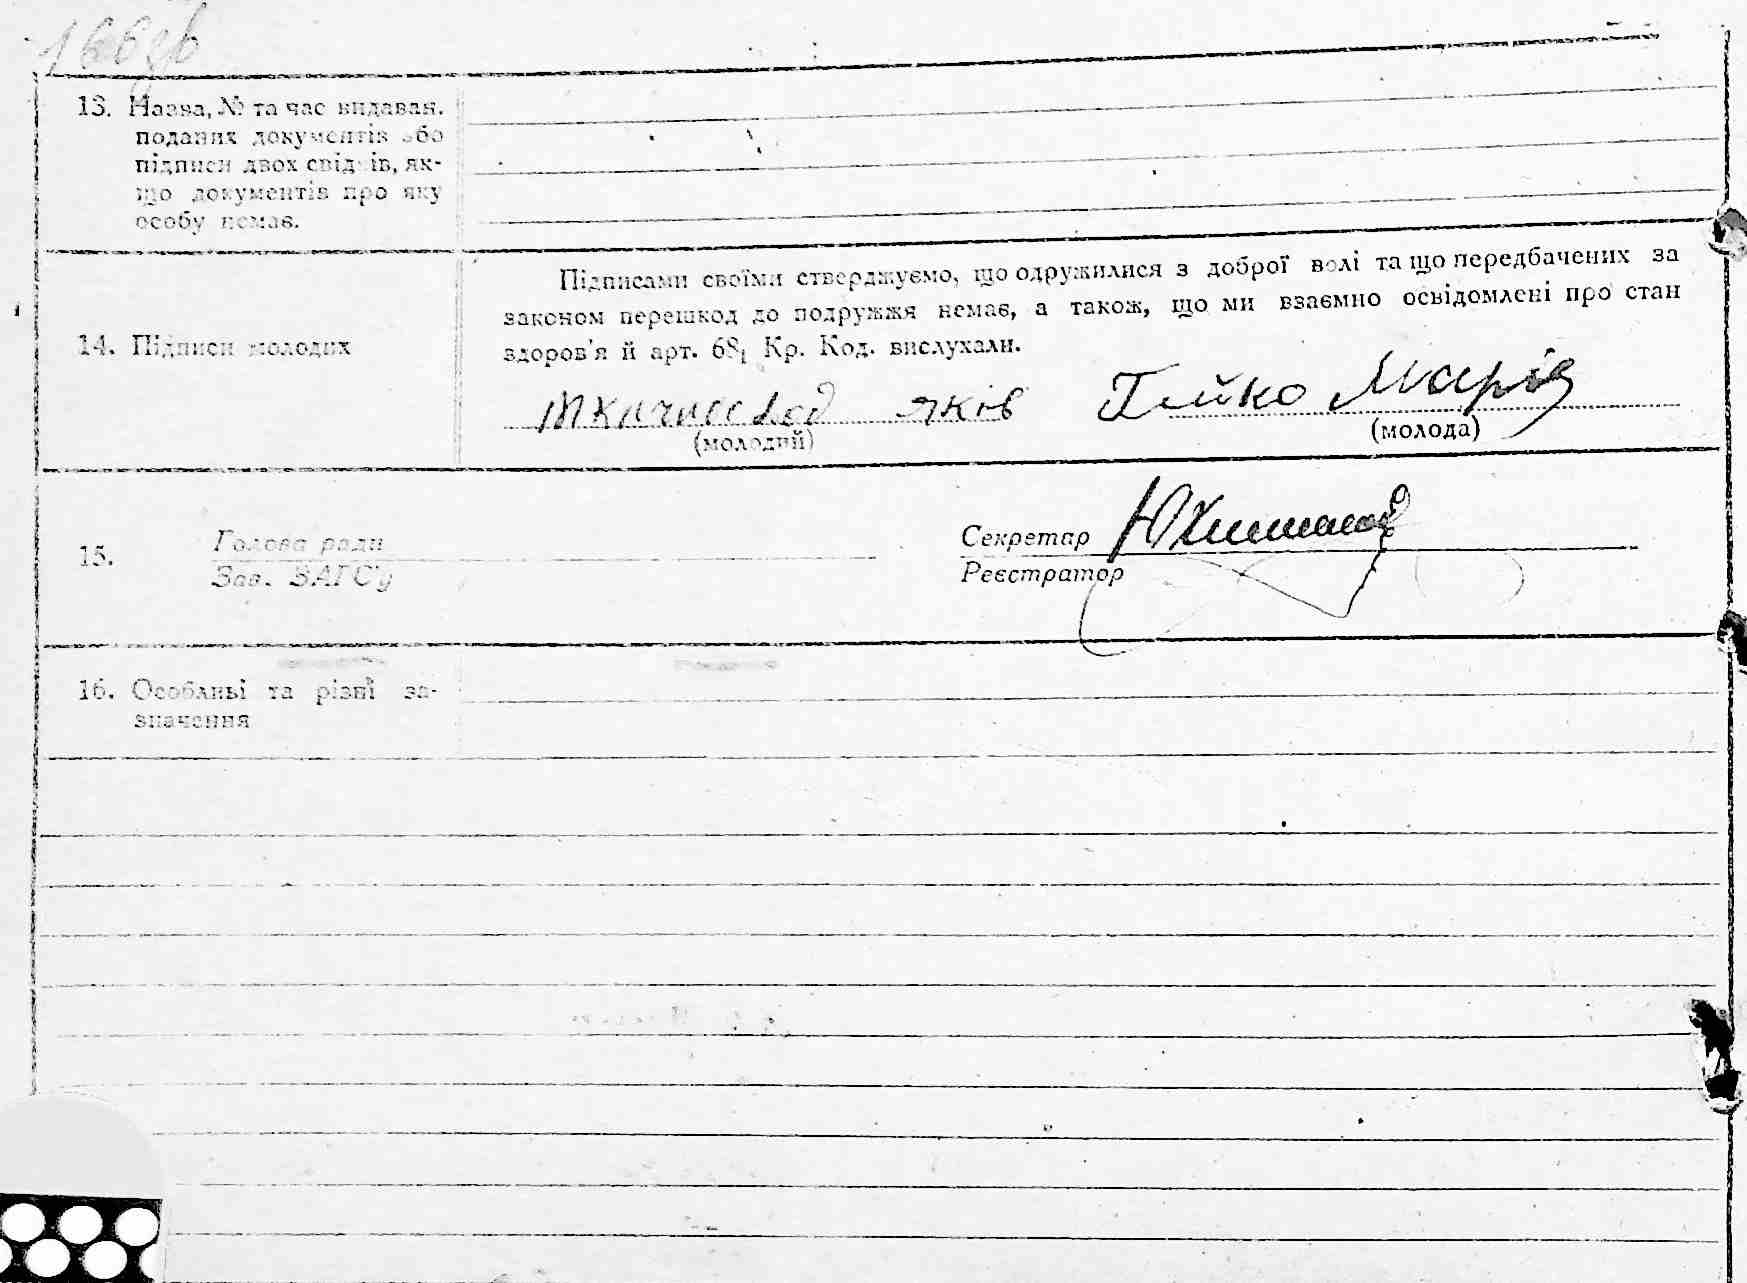 166зв
13. Назва, № та час видаван.
поданих документів або
підписи двох свідків, як-
що документів про яку
особу немає.
Підписами своїми стверджуємо, що одружилися з доброї волі та що передбачених за
законом перешкод до подружжя немає, а також, що ми взаємно освідомлені про стан
14. Підписи молодих
здоров'я й арт. 68₁ Кр. Код. вислухали.
яків Гейко Марія
(молодий) (молода)
15. Голова ради
Зав. ЗАГС'у
Секретар
Реєстратор
16. Особливі та різні за-
значення